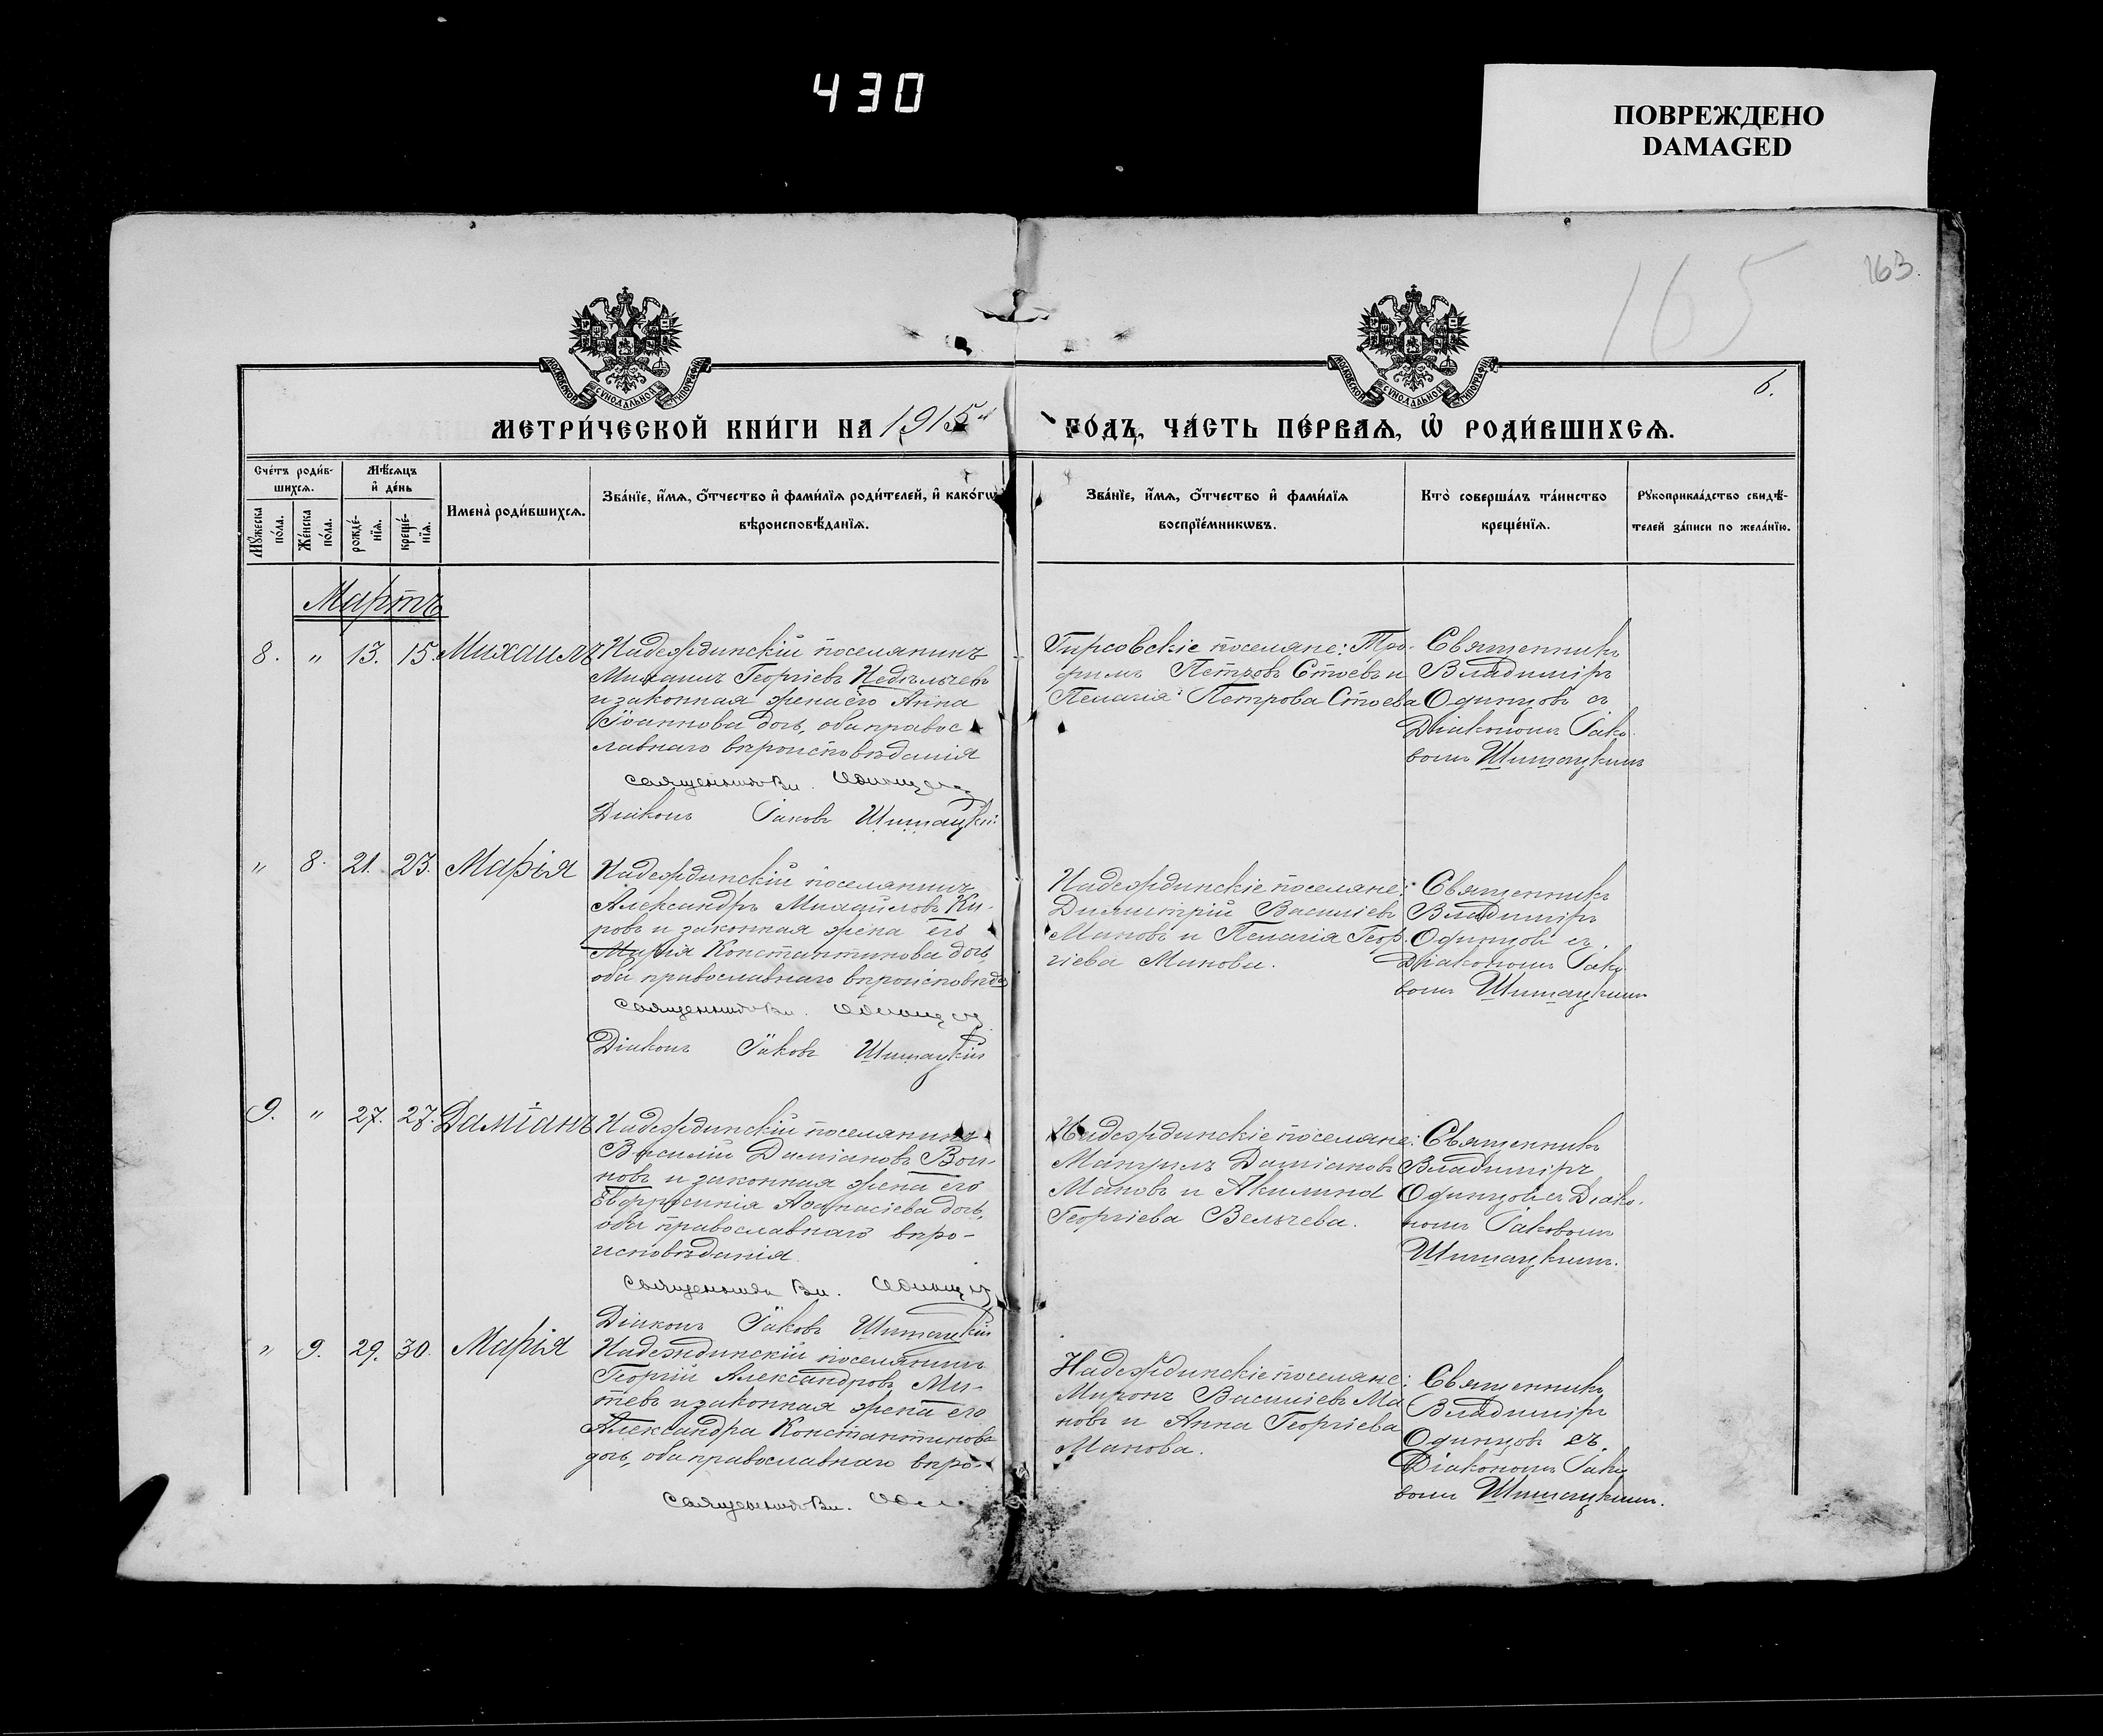 430
ПОВРЕЖДЕНО
DAMAGED
165
163.
6.
МОСКОВСКОЙ СѴНОДАЛЬНОЙ ТИПОГРАФІИ
МОСКОВСКОЙ СѴНОДАЛЬНОЙ ТИПОГРАФІИ
МЕТРИ́ЧЕСКОЙ КНИ́ГИ НА 1915й ГО́ДЪ, ЧА́СТЬ ПЕ́РВАѦ, Ѡ҆ РОДИ́ВШИХСѦ.
Сче́тъ роди́в-
шихсѧ.
Мꙋ́жеска по́ла.
Же́нска по́ла.
Мѣ́сѧцъ
и҆ де́нь
рожде́-
нїѧ.
креще́-
нїѧ.
И҆мена̀ роди́вшихсѧ.
Зва́нїе, и҆́мѧ, ѻ҆́тчество и҆ фами́лїѧ роди́телей, и҆ како́гѡ
вѣроисповѣ́данїѧ.
Зва́нїе, и҆́мѧ, ѻ҆́тчество и҆ фами́лїѧ
воспрїе́мникѡвъ.
Кто̀ соверша́лъ та́инство
креще́нїѧ.
Рꙋкоприкла́дство свидѣ́-
телей за́писи по жела́нїю.
Мартъ
8. " 13. 15. Михаилъ
Надеждинскій поселянинъ
Михаилъ Георгіевъ Недѣльчевъ
и законная жена его Анна
Іоаннова дочь, оба правос
лавнаго вѣроисповѣданія
Священникъ Вл. Одинцовъ
Діаконъ Іаковъ Шишацкій
Гирсовскіе поселяне: Тро-
фимъ Петровъ Стоевъ и
Пелагія Петрова Стоева
Священникъ
Владиміръ
Одинцовъ съ
Діакономъ Іако
вомъ Шишацкимъ
" 8. 21. 23. Марія
Надеждинскій поселянинъ
Александръ Михайловъ Ки-
ровъ и законная жена его
Марія Константинова дочь,
оба православнаго вѣроисповѣда
Священникъ Вл. Одинцовъ
Діаконъ Іаковъ Шишацкій
Надеждинскіе поселяне:
Димитрій Василіевъ
Мановъ и Пелагія Геор-
гіева Манова.
Священникъ
Владиміръ
Одинцовъ съ
Діакономъ Іако
вомъ Шишацкимъ
9. " 27. 27. Даміанъ
Надеждинскій поселянинъ
Василій Даміановъ Вои-
новъ и законная жена его
Евфросинія Аѳанасіева дочь,
оба православнаго вѣро-
исповѣданія.
Священникъ Вл. Одинцовъ
Діаконъ Іаковъ Шишацкій
Надеждинскіе поселяне:
Даміановъ
Мановъ и Акилина
Георгіева Вельчева.
Священникъ
Владиміръ
Одинцовъ съ Діако-
номъ Іаковомъ
Шишацкимъ.
" 9. 29. 30. Марія
Надеждинскій поселянинъ
Георгій Александровъ Ми-
тевъ и законная жена его
Александра Константинова
дочь, оба православнаго вѣро-
Священникъ Вл.
Надеждинскіе поселяне:
Миронъ Василіевъ Ма
новъ и Анна Георгіева
Манова.
Священникъ
Владиміръ
Одинцовъ съ
Діакономъ Іако
вомъ Шишацкимъ.